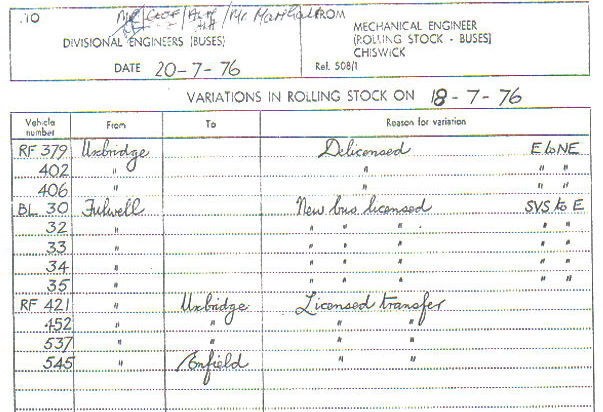 TO / / / Mr. FROM
DIVISIONAL ENGINEERS (BUSES)
MECHANICAL ENGINEER
(ROLLING STOCK - BUSES)
CHISWICK
DATE 20-7-76 Ref. 508/1
VARIATIONS IN ROLLING STOCK ON 18-7-76
Vehicle number From To Reason for variation
RF 379 Uxbridge Delicensed E to NE
402 " " " "
406 " " " "
BL 30 Fulwell New bus licensed SVS to E
32 " " " " " "
33 " " " " " "
34 " " " " " "
35 " " " " " "
RF 421 " Uxbridge Licensed transfer
452 " " " "
537 " " " "
545 " Enfield " "